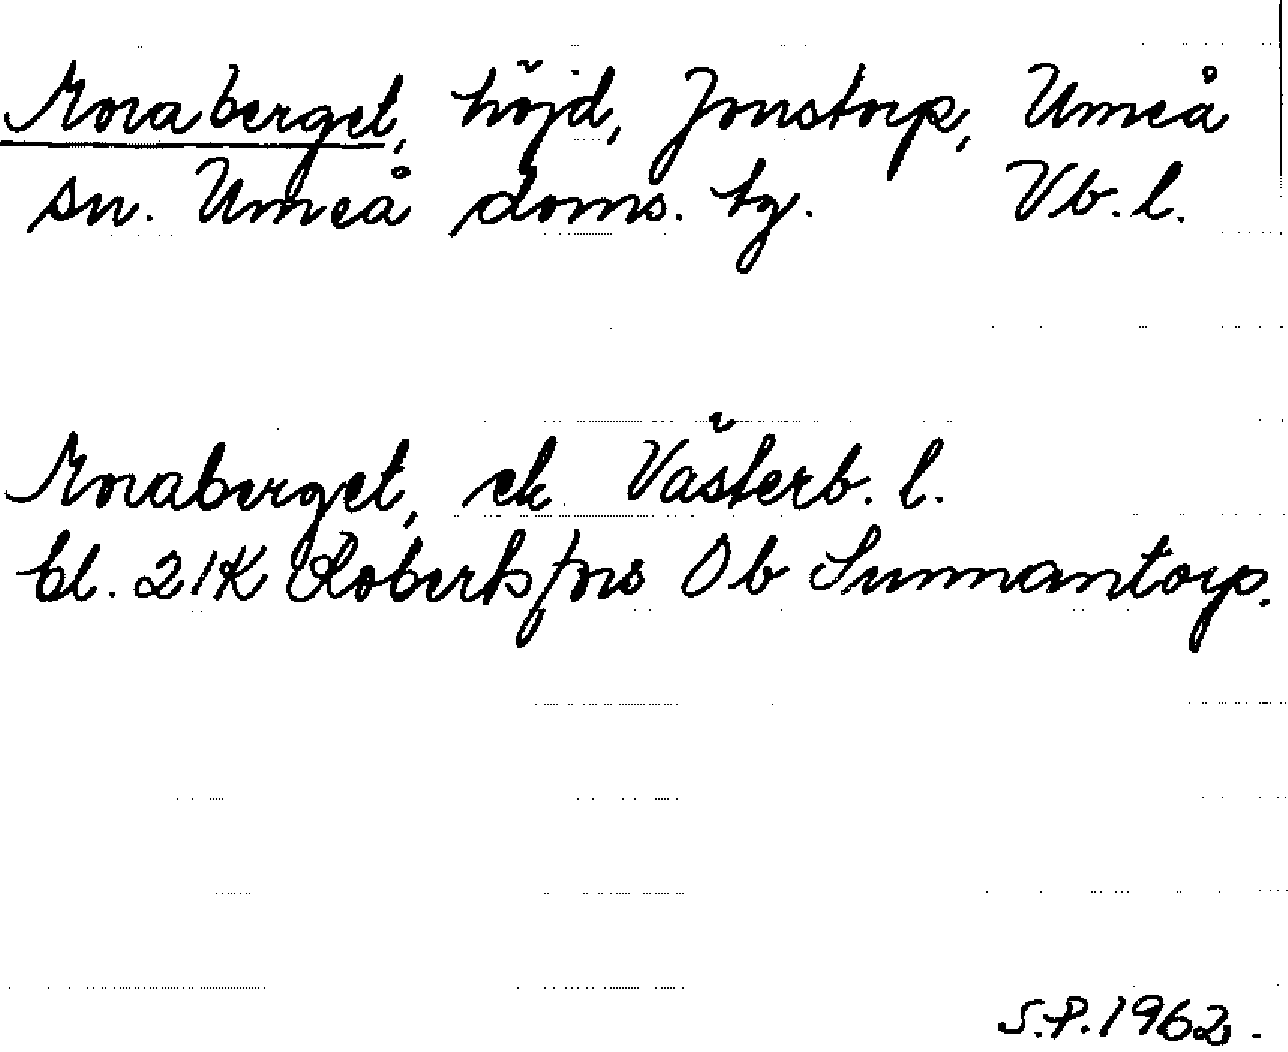 Moraberget, höjd, Jonstorp, Umeå
sn. Umeå doms. tg. Vb. l.
Moraberget, ek. Västerb. l.
bl. 21K Robertsfors Ob Sunnantorp.
S.P. 1962.